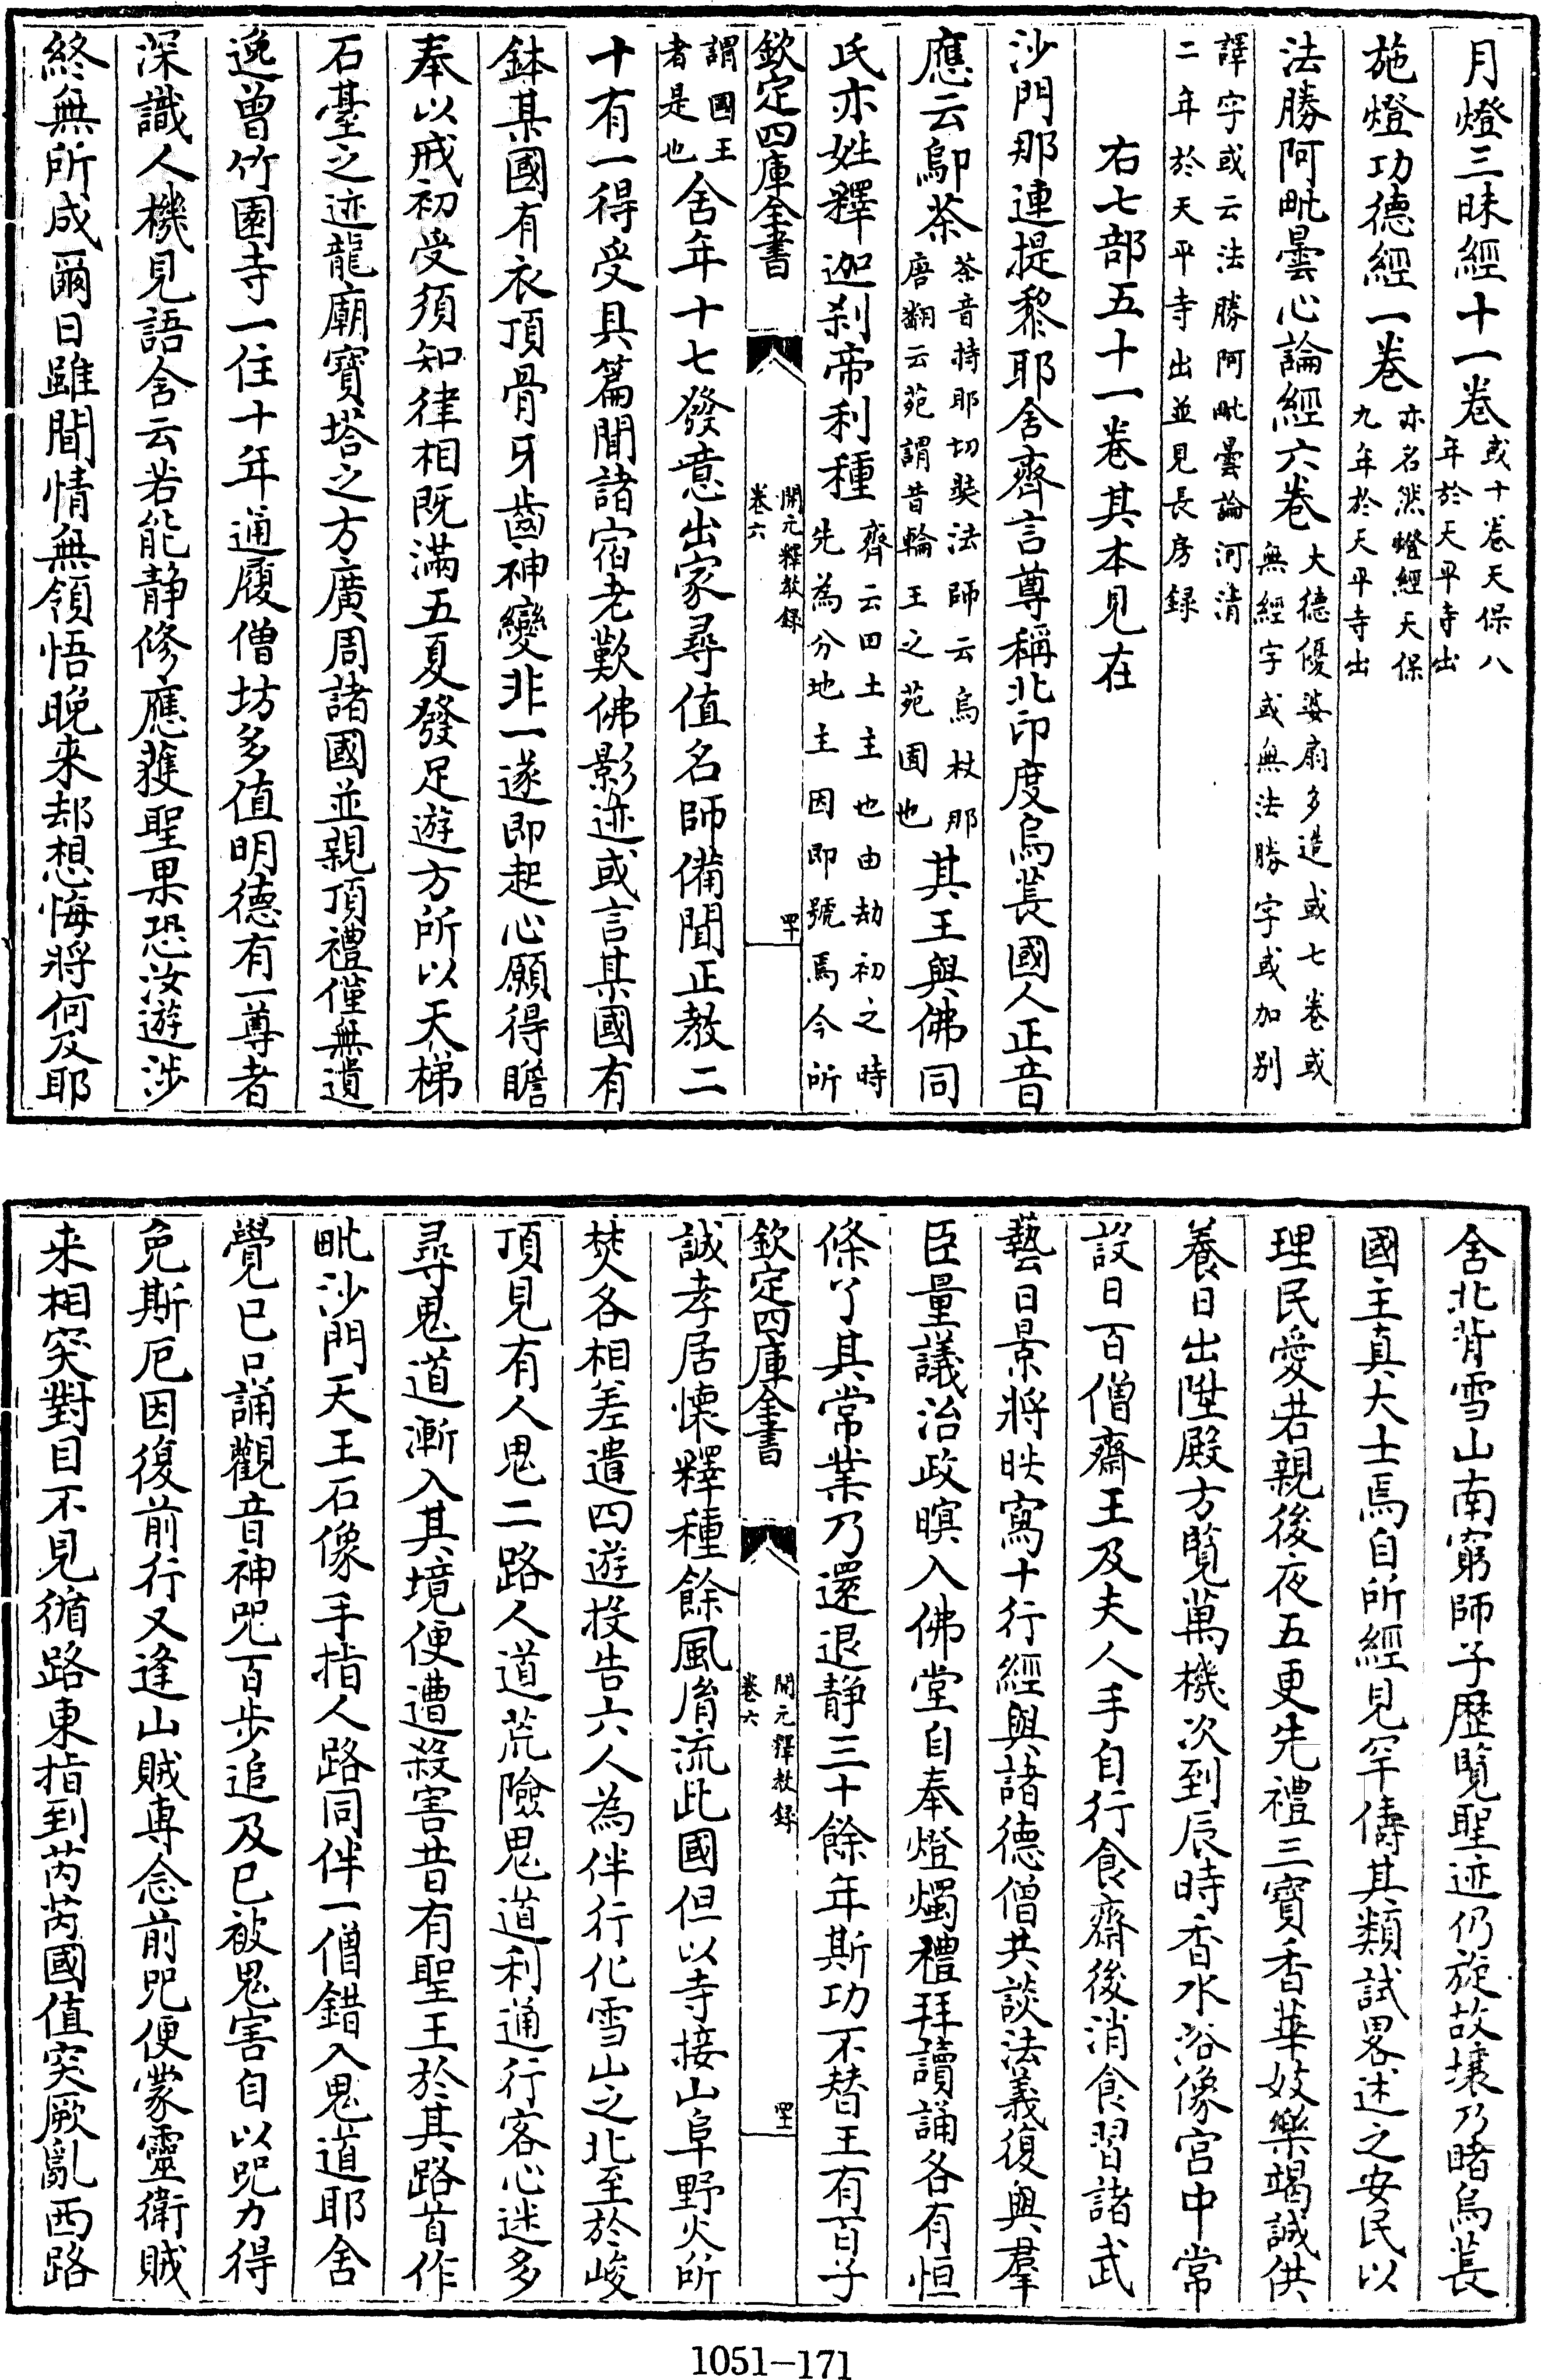 月燈三昧經十一卷或十卷天保八年於天平寺出
施燈功德經一卷亦名然燈經天保九年於天平寺出
法勝阿毗曇心論經六卷大德優婆扇多造或七卷或無經字或無法勝字或加別
譯字或云法勝阿毗曇論河清二年於天平寺出並見長房録
右七部五十一卷其本見在
沙門那連提黎耶舍齊言尊稱北印度烏萇國人正音
應云鄔荼荼音持耶切奘法師云烏杖那唐翻云苑謂昔輪王之苑囿也其王與佛同
氏亦姓釋迦刹帝利種齊云田土主也由劫初之時先為分地主因即號焉今所
欽定四庫全書
開元釋教録
卷六
四十
謂國王者是也舍年十七發意出家尋值名師備聞正教二
十有一得受具篇聞諸宿老歎佛影迹或言某國有
鉢某國有衣頂骨牙齒神變非一遂即起心願得瞻
奉以戒初受須知律相既滿五夏發足遊方所以天梯
石臺之迹龍廟寶塔之方廣周諸國並親頂禮僅無遺
逸曾竹園寺一住十年通履僧坊多值明德有一尊者
深識人機見語舍云若能静修應獲聖果恐汝遊涉
終無所成爾日雖聞情無領悟晚来却想悔將何及耶
舍北背雪山南窮師子歷覽聖迹仍旋故壤乃睹烏萇
國主真大士焉自所經見罕儔其類試畧述之安民以
理民愛若親後夜五更先禮三寳香華妓樂竭誠供
養日出陞殿方覽萬機次到辰時香水浴像宫中常
設日百僧齋王及夫人手自行食齋後消食習諸武
藝日景將昳寫十行經與諸德僧共談法義復與羣
臣量議治政暝入佛堂自奉燈燭禮拜讀誦各有恒
條丫其常業乃還退静三十餘年斯功不替王有百子
欽定四庫全書
開元釋教録
卷六
四十一
誠孝居懐釋種餘風胤流此國但以寺接山阜野火所
焚各相差遣四遊投告六人為伴行化雪山之北至於峻
頂見有人鬼二路人道荒險鬼道利通行客心迷多
尋鬼道漸入其境便遭殺害昔有聖王於其路首作
毗沙門天王石像手指人路同伴一僧錯入鬼道耶舍
覺已口誦觀音神咒百步追及已被鬼害自以咒力得
免斯厄因復前行又逢山賊専念前咒便蒙靈衛賊
来相突對目不見循路東指到芮芮國值突厥亂西路
1051-171